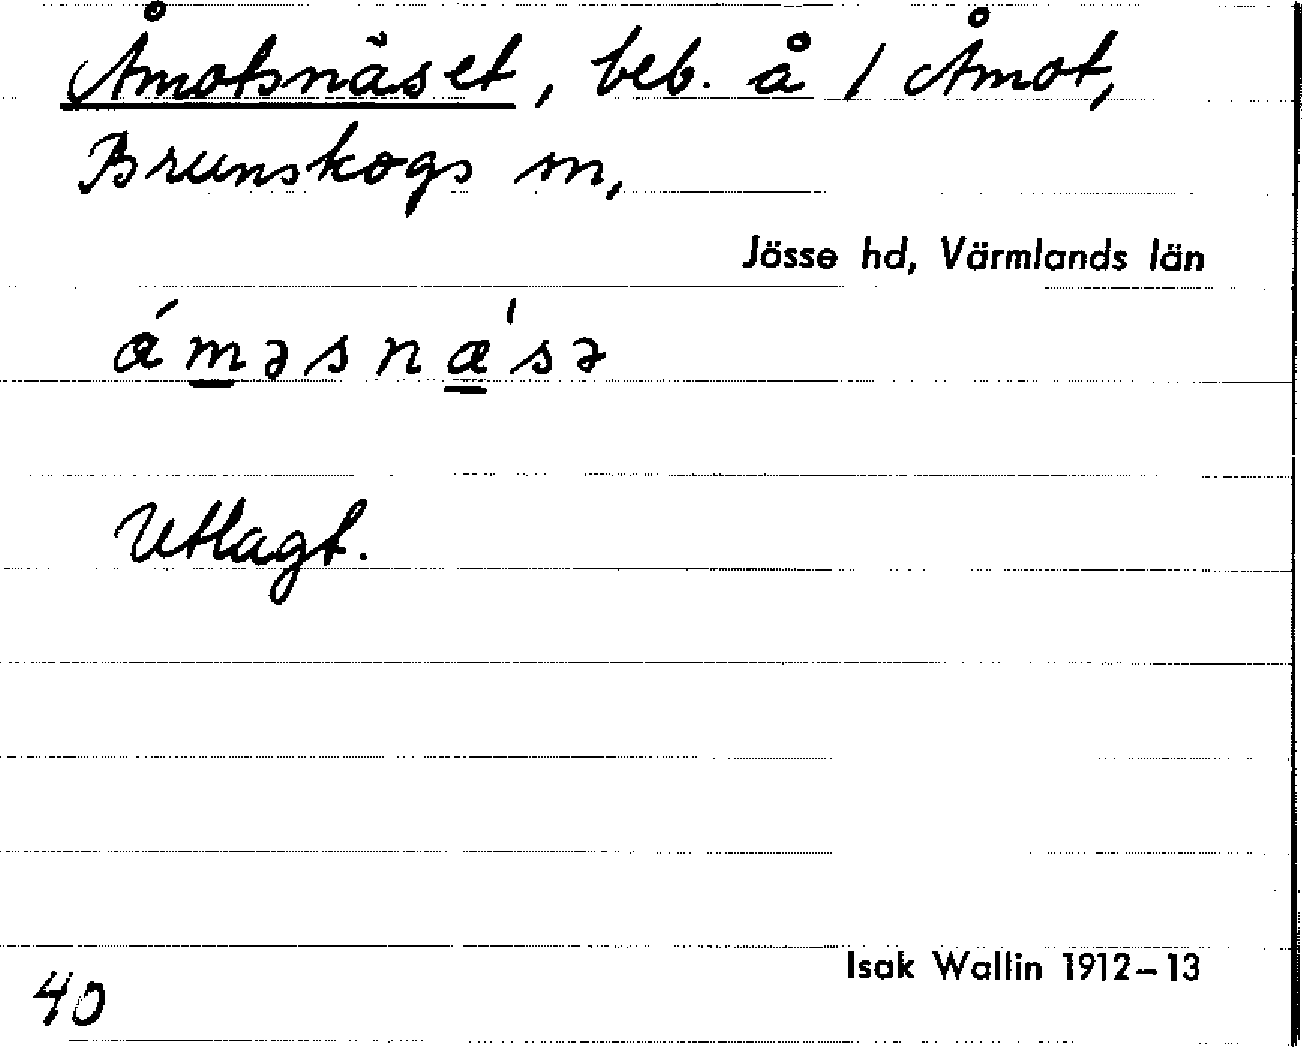 Åmotsnäset, beb. å 1 Åmot,
Brunskogs sn,
Jösse hd, Värmlands län
áməsnæ'sə
Utlagt.
Isak Wallin 1912–13
40